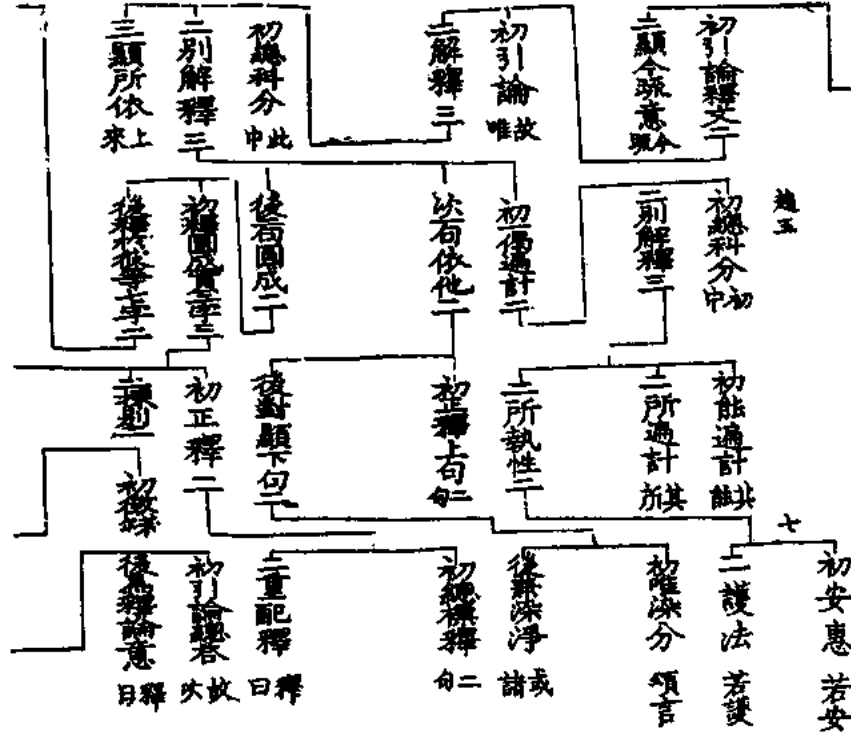 初引論釋文二
二顯今疏意 今顯
初引論 故唯
二解釋三
初總科分 此中
二別解釋三
三顯所依 上來
初總科分 初中
二別解釋三
初一偈遍計二
次句依他二
後句圓成二
初釋圓成實三字三
初能遍計 其能
二所遍計 其所
三所執性二
初正釋上句 二句
後對顯下句二
初正釋二
二揀別二
初徵
七
初安惠 若安
二護法 若護
初唯染分 頌言
後兼染淨 或諸
初總標釋 二句
二重配釋 釋曰
初引論總答 故次
後疏釋論意 釋曰